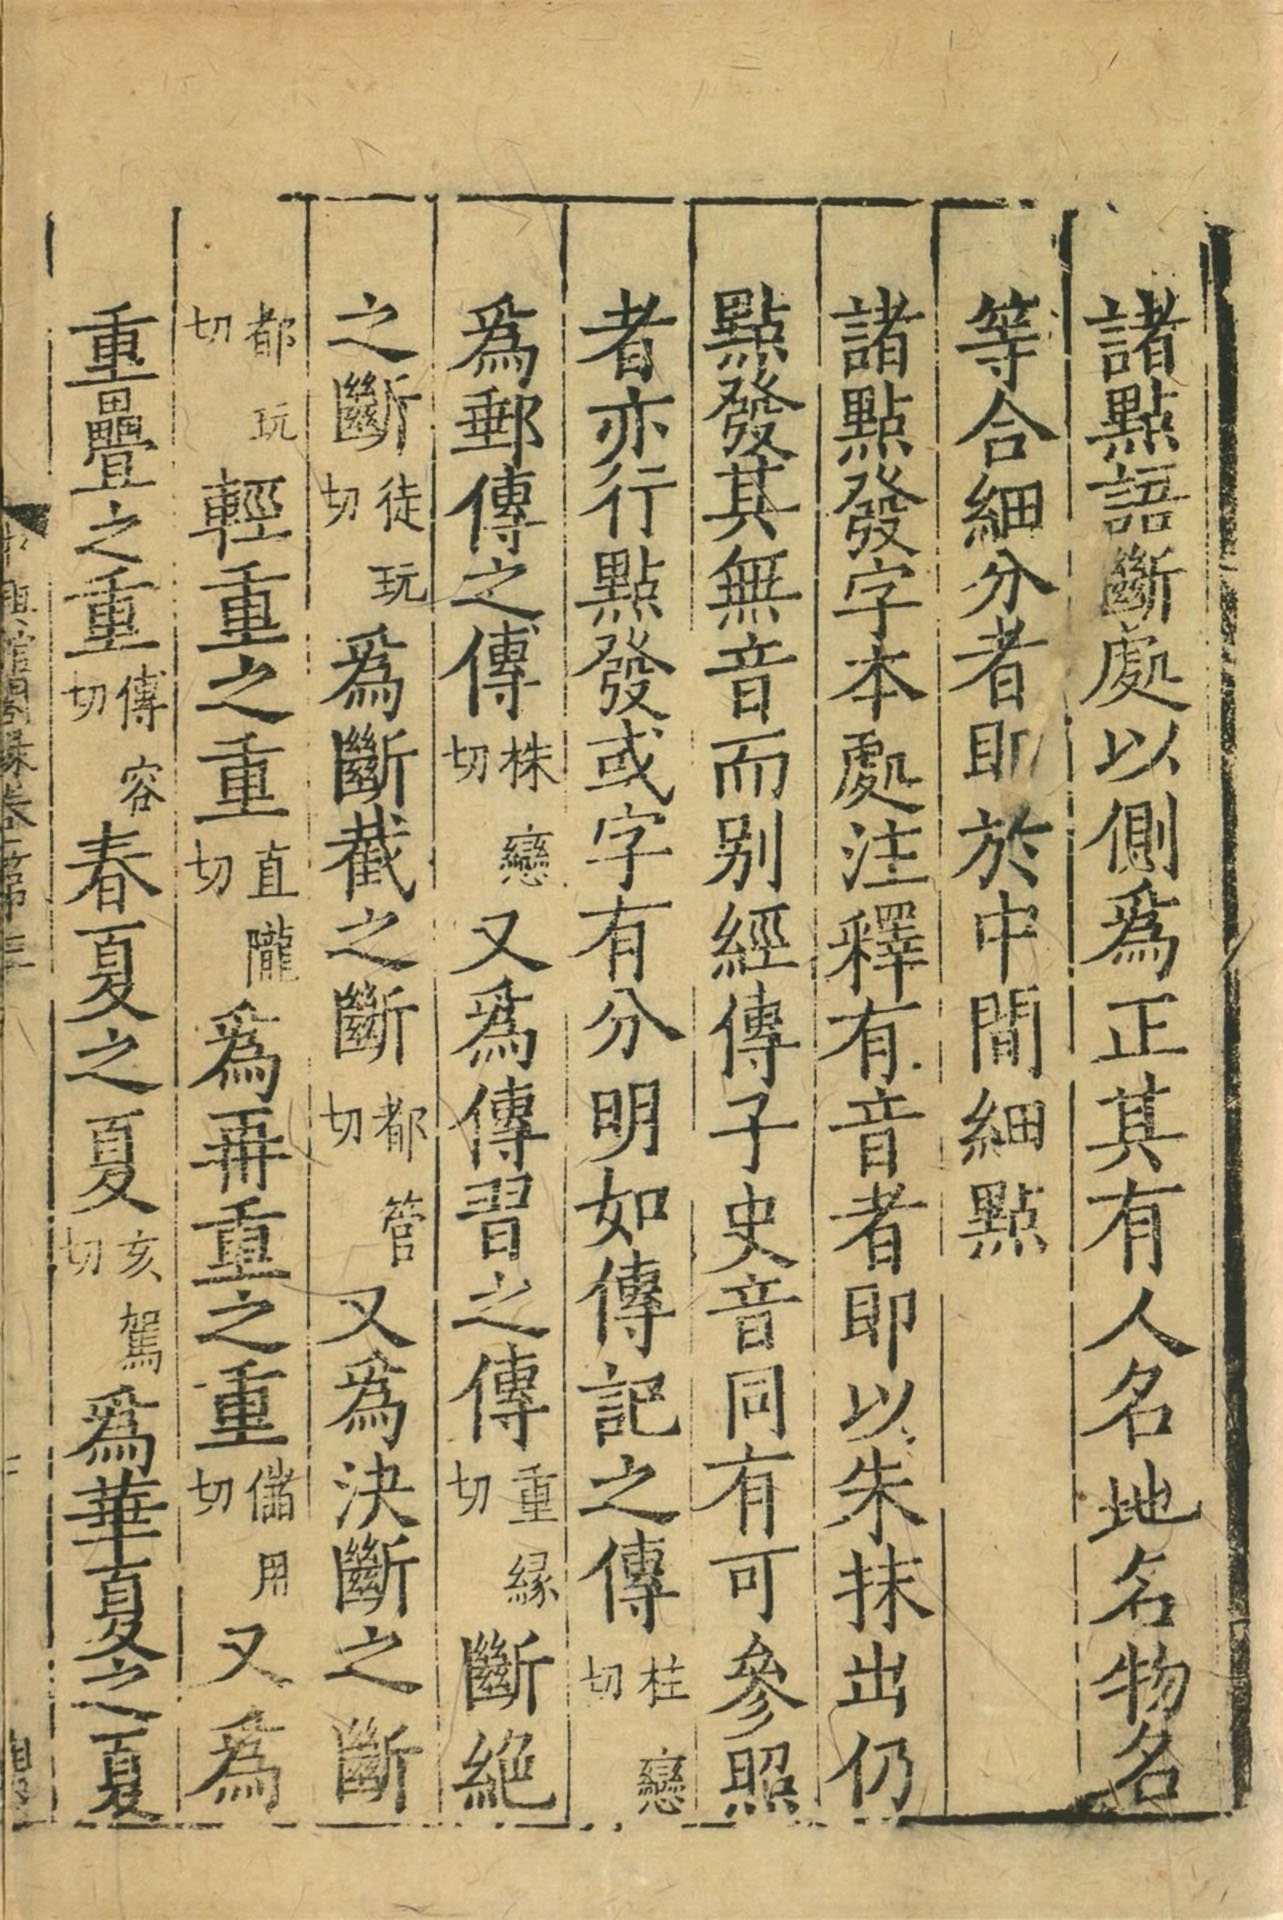 諸點語斷處以側爲正其有人名地名物名
等合細分者即於中間細點
諸點發字本處注釋有音者即以朱抹出仍
點發其無音而别經傳子史音同有可參照
者亦行點發或字有分明如傳記之傳柱戀切
爲郵傳之傳株戀切又爲傳習之傳重緣切斷絕
之斷徒玩切爲斷截之斷都管切又爲決斷之斷
都玩切輕重之重直隴切爲再重之重儲用切又爲
重疊之重傳容切春夏之夏亥駕切爲華夏之夏